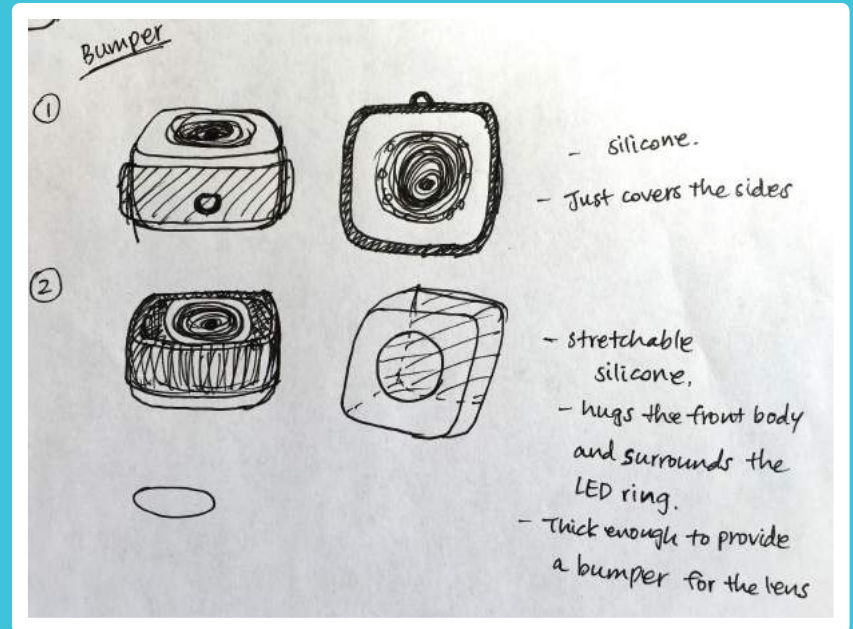 Bumper
1
- silicone.
- Just covers the sides
2
- stretchable
silicone,
- hugs the front body
and surrounds the
LED ring.
- Thick enough to provide
a bumper for the lens